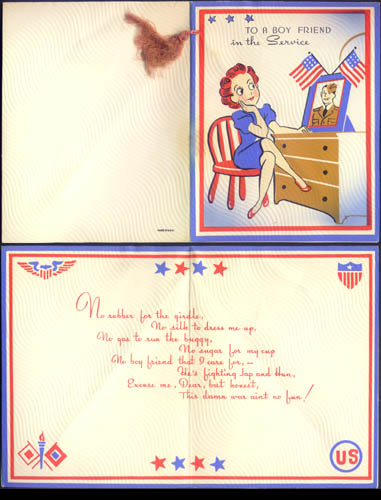 TO A BOY FRIEND
in the Service
MADE IN U.S.A.
No rubber for the girdle,
No silk to dress me up,
No gas to run the buggy,
No sugar for my cup
No boy friend that I care for,—
He's fighting Jap and Hun,
Excuse me, Dear, but honest,
This damn war aint no fun!
US